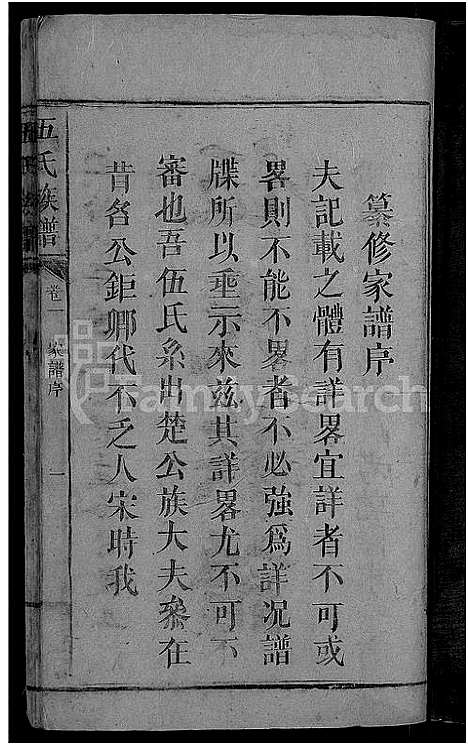 纂修家譜序
夫記載之體有詳畧宜詳者不可或
畧則不能不畧者不必強爲詳况譜
牒所以垂示來兹其詳畧尤不可不
審也吾伍氏系出楚公族大夫參在
昔名公鉅卿代不乏人宋時我
伍氏族譜
卷一 家譜序 一
FamilySearch